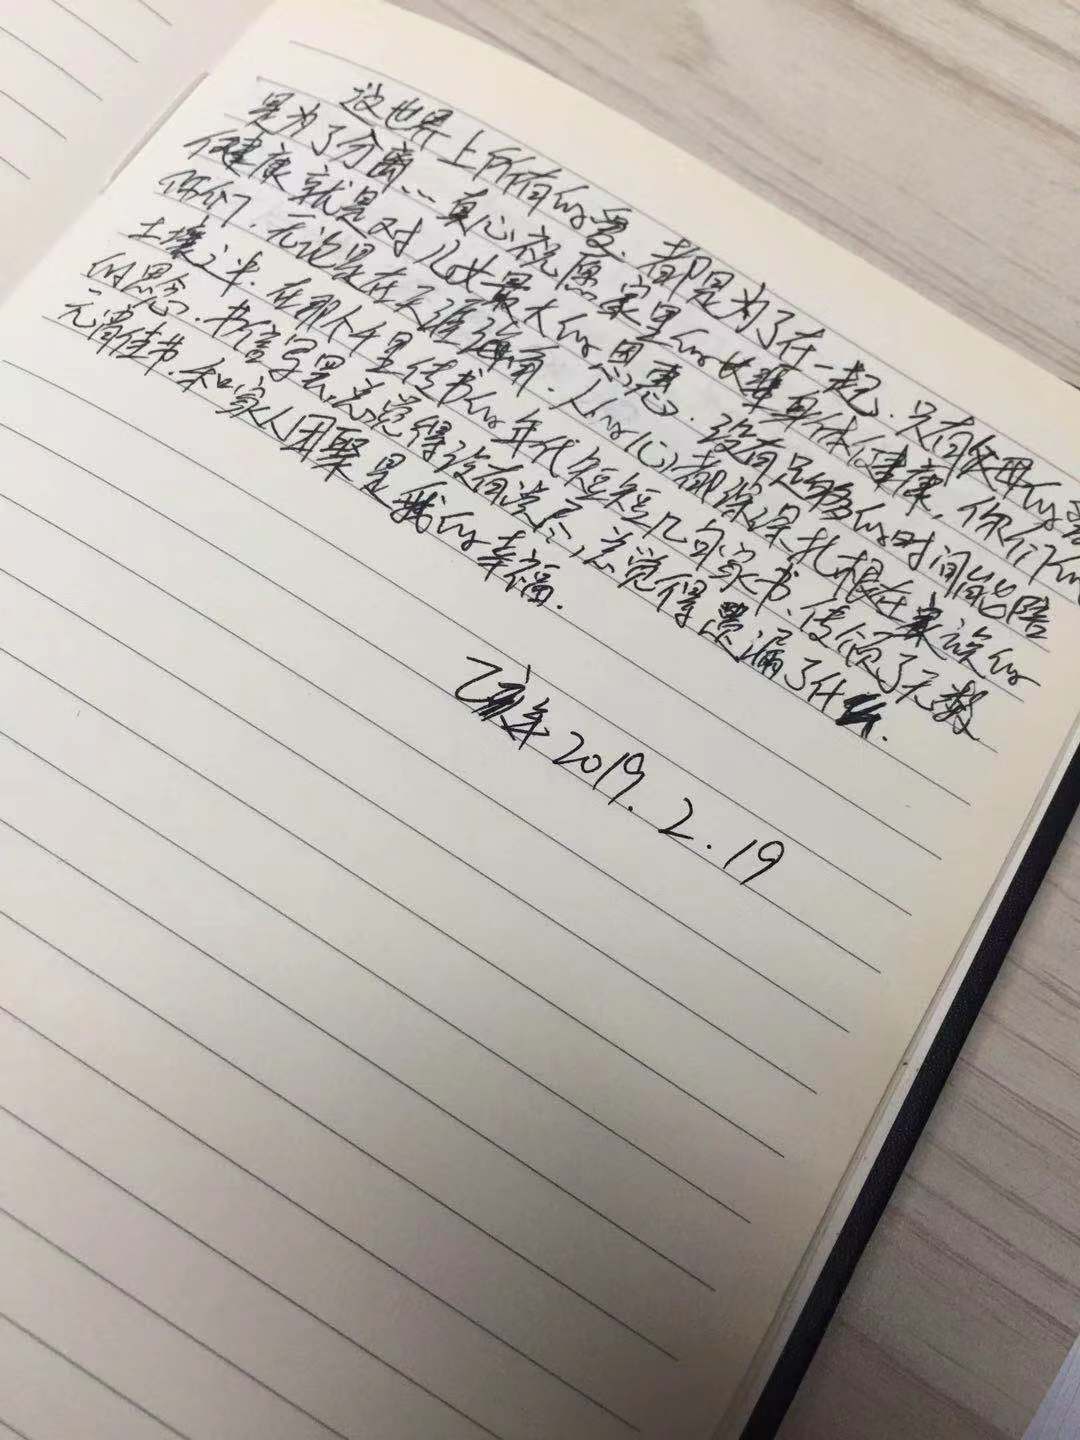 这世界上所有的爱、都是为了在一起、只有父母的爱
是为了分离、、真心祝愿家里的长辈身体健康，你们的
健康就是对儿女最大的恩惠．没有足够的时间能陪
你们，无论是在天涯海角．人的心都深深扎根在家族的
土壤之中．在那个千里传书的年代短短几句家书、传颂了无数
的思念．书信写罢，总觉得没有说尽，总觉得遗漏了什么．
元宵佳节．和家人团聚是我的幸福．
2019.2.19